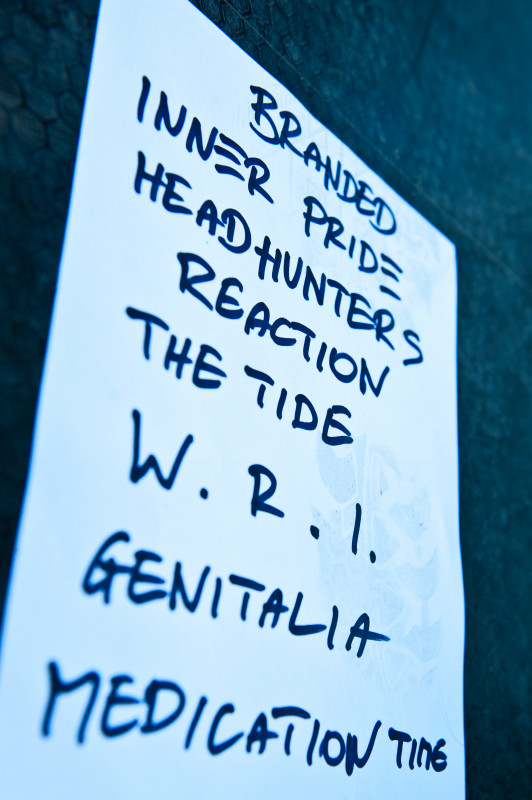 BRANDED
INNER PRIDE
HEADHUNTERS
REACTION
THE TIDE
W. R. I.
GENITALIA
MEDICATION TIME